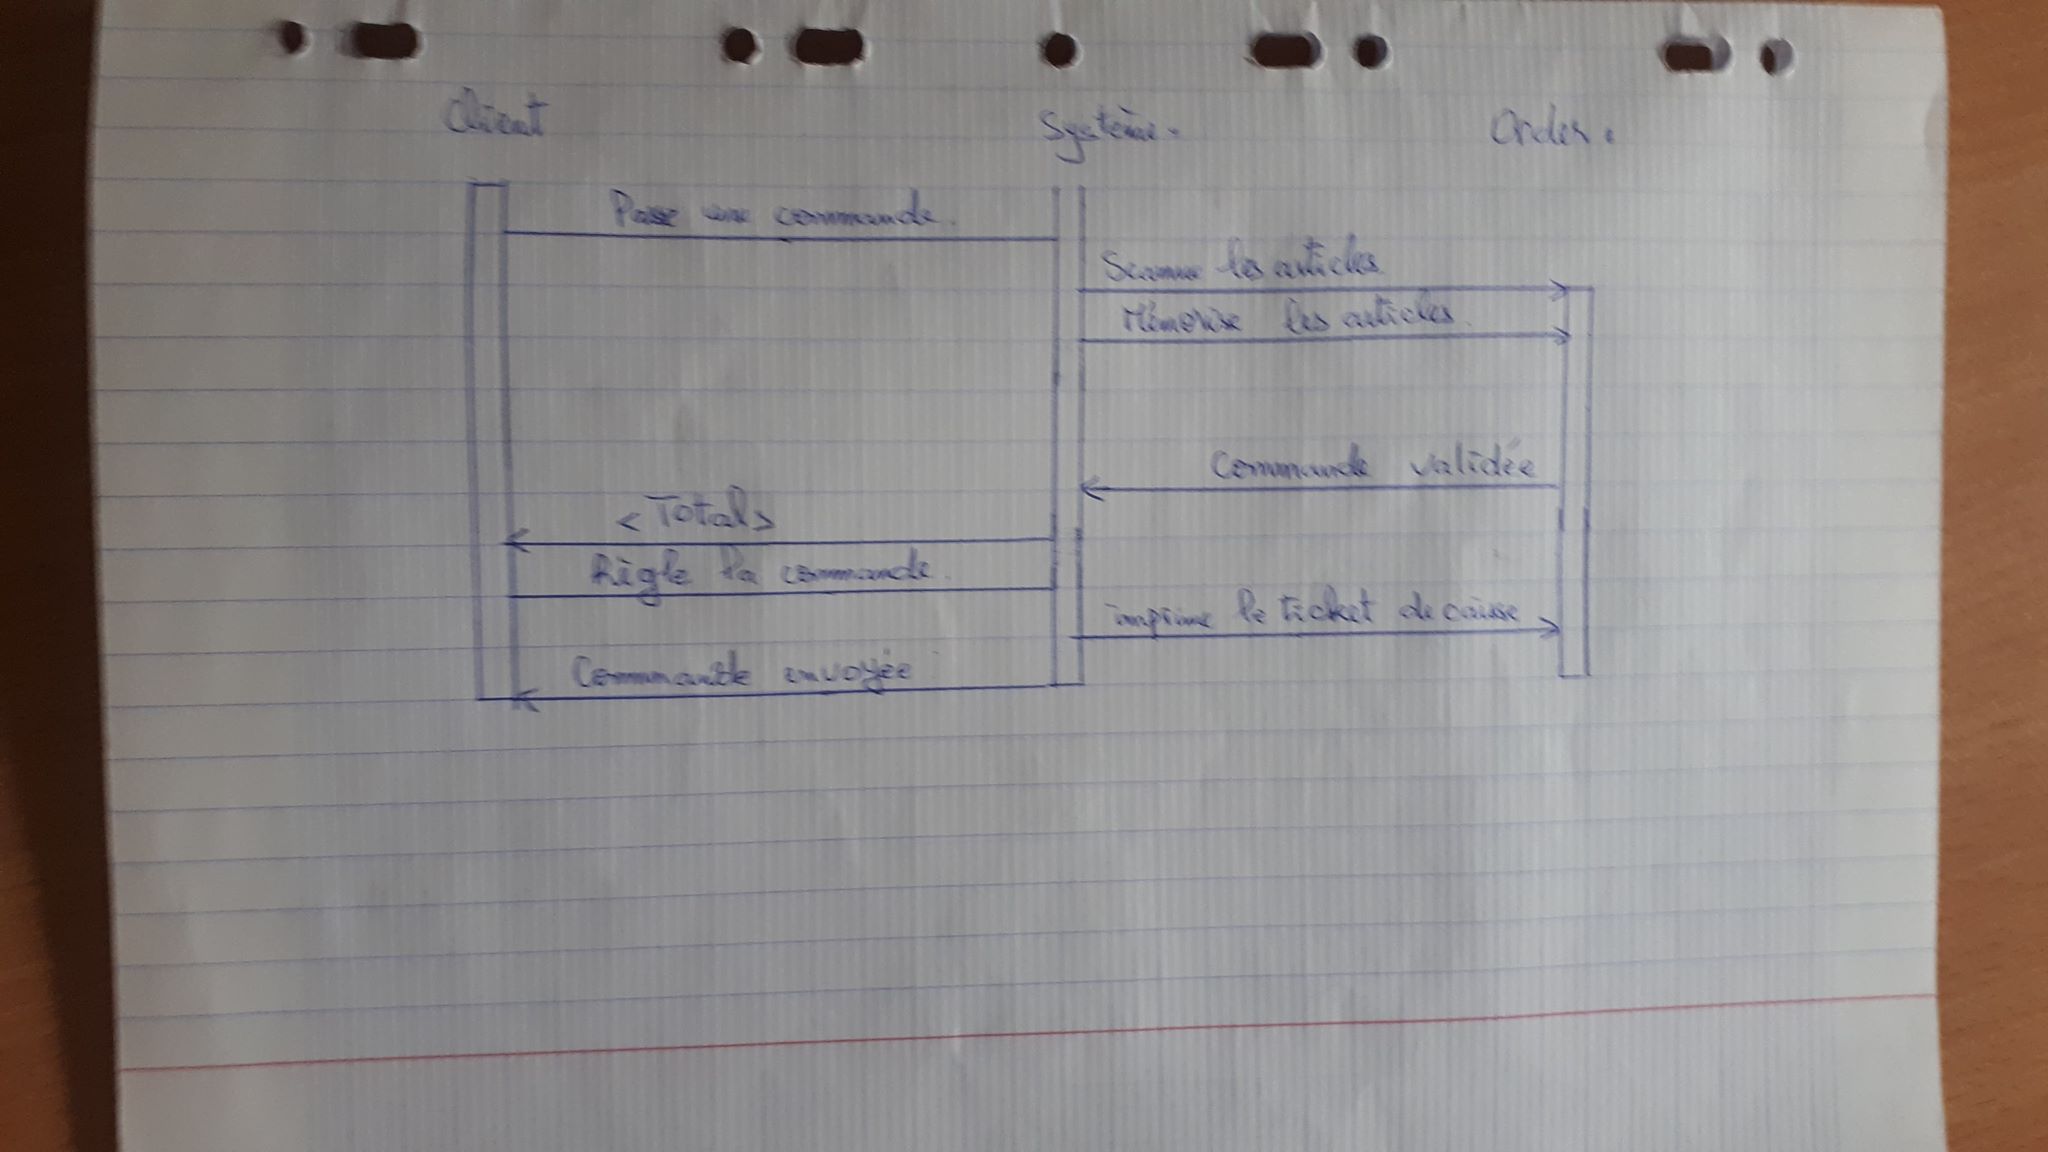 Client
Système.
Order.
Passe une commande.
Scanne les articles.
Mémorise les articles.
Commande validée
<Total>
Règle la commande.
imprime le ticket de caisse
Commande envoyée